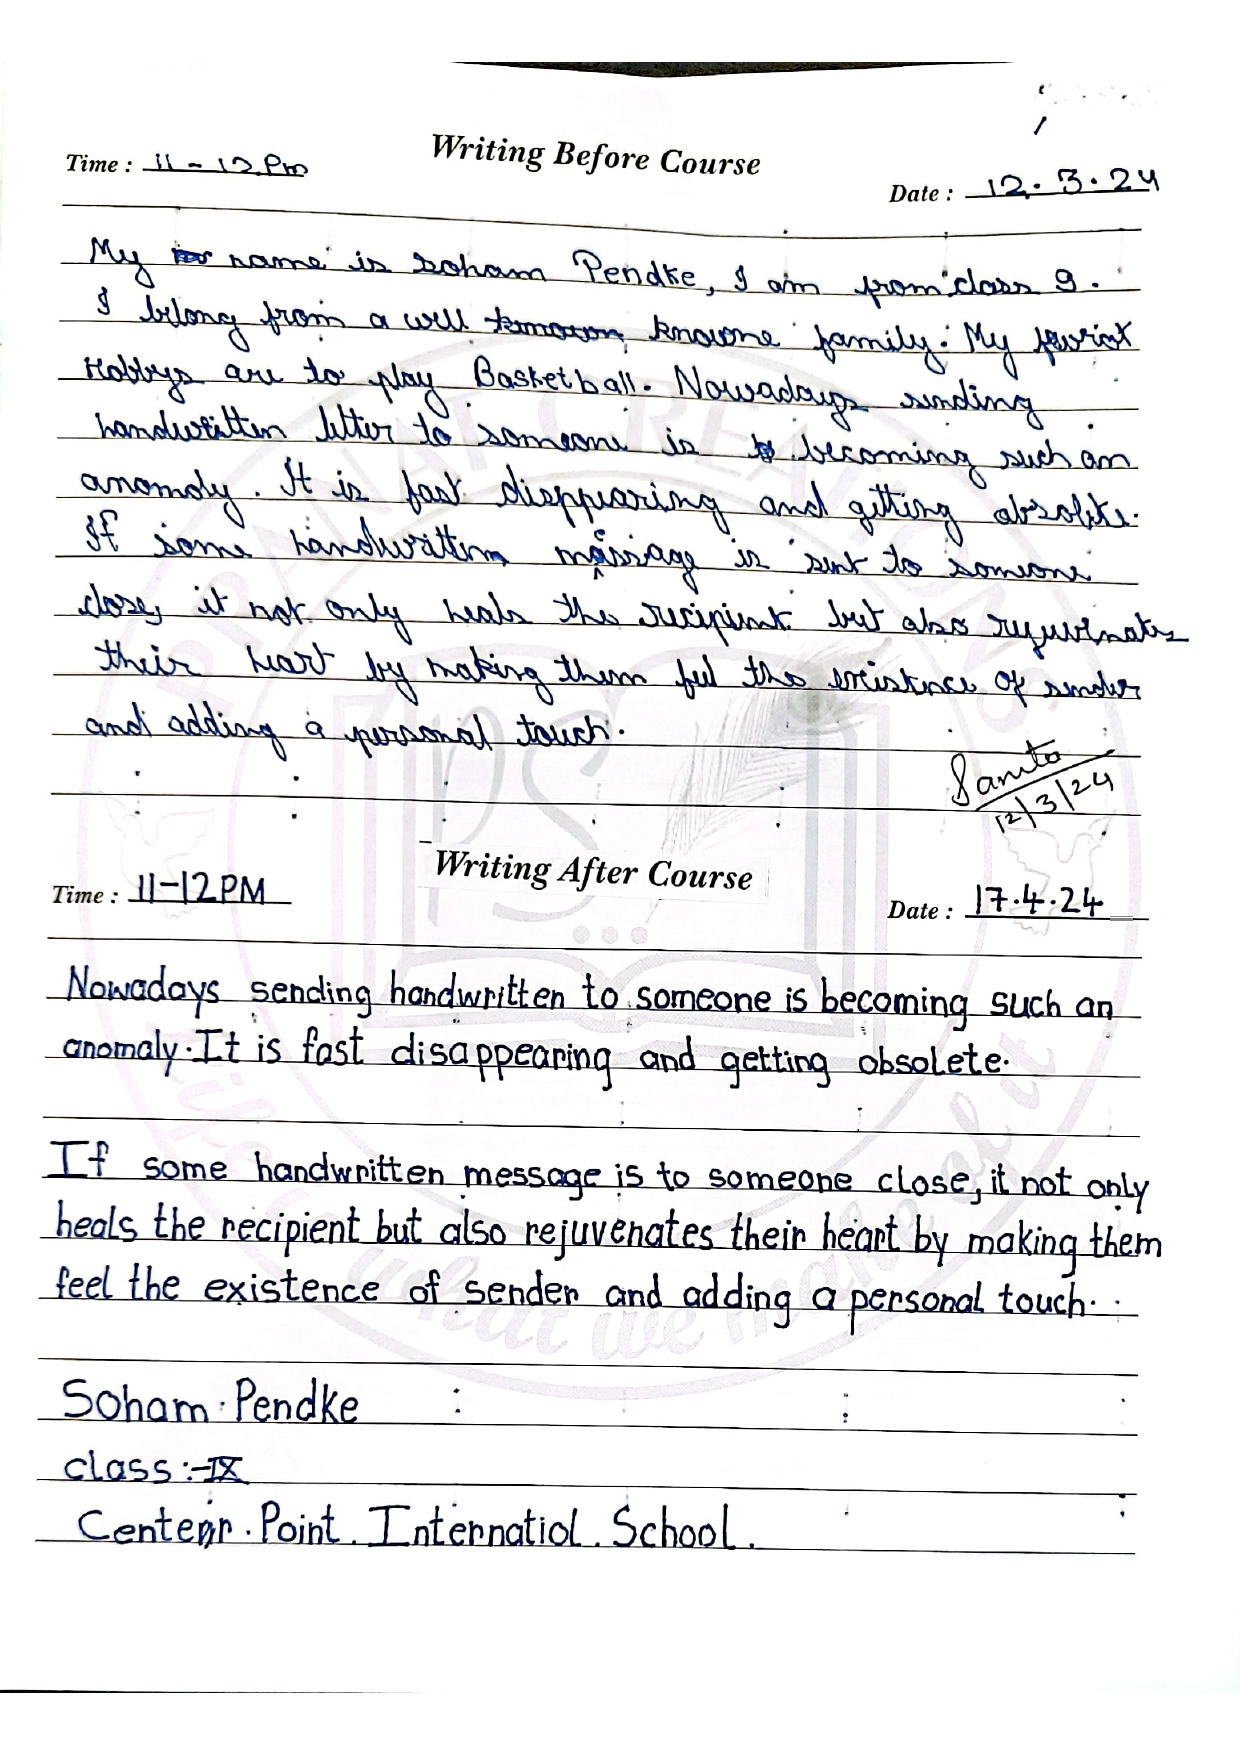 Writing Before Course
Time : 11 - 12 Pm
Date : 12.3.24
My name is soham Pendke, I am from class 9.
I belong from a well knowne family. My
Hobbys are to play Basketball. Nowadays sending
handwritten letter to someone is becoming such an
anomaly. It is fast disappearing and getting
If some handwritten message is sent to someone
close, it not only heals the recipient but also rejuvenates
their heart by making them feel the existence of sender
and adding a personal touch.
12/3/24
Writing After Course
Time : 11-12PM
Date : 17.4.24
Nowadays sending handwritten to someone is becoming such an
anomaly. It is fast disappearing and getting obsolete.
If some handwritten message is to someone close, it not only
heals the recipient but also rejuvenates their heart by making them
feel the existence of sender and adding a personal touch.
Soham. Pendke
class :- IX
Point. Internatiol. School.
PRANAT CREATIONS
PS
Life is what we make of it